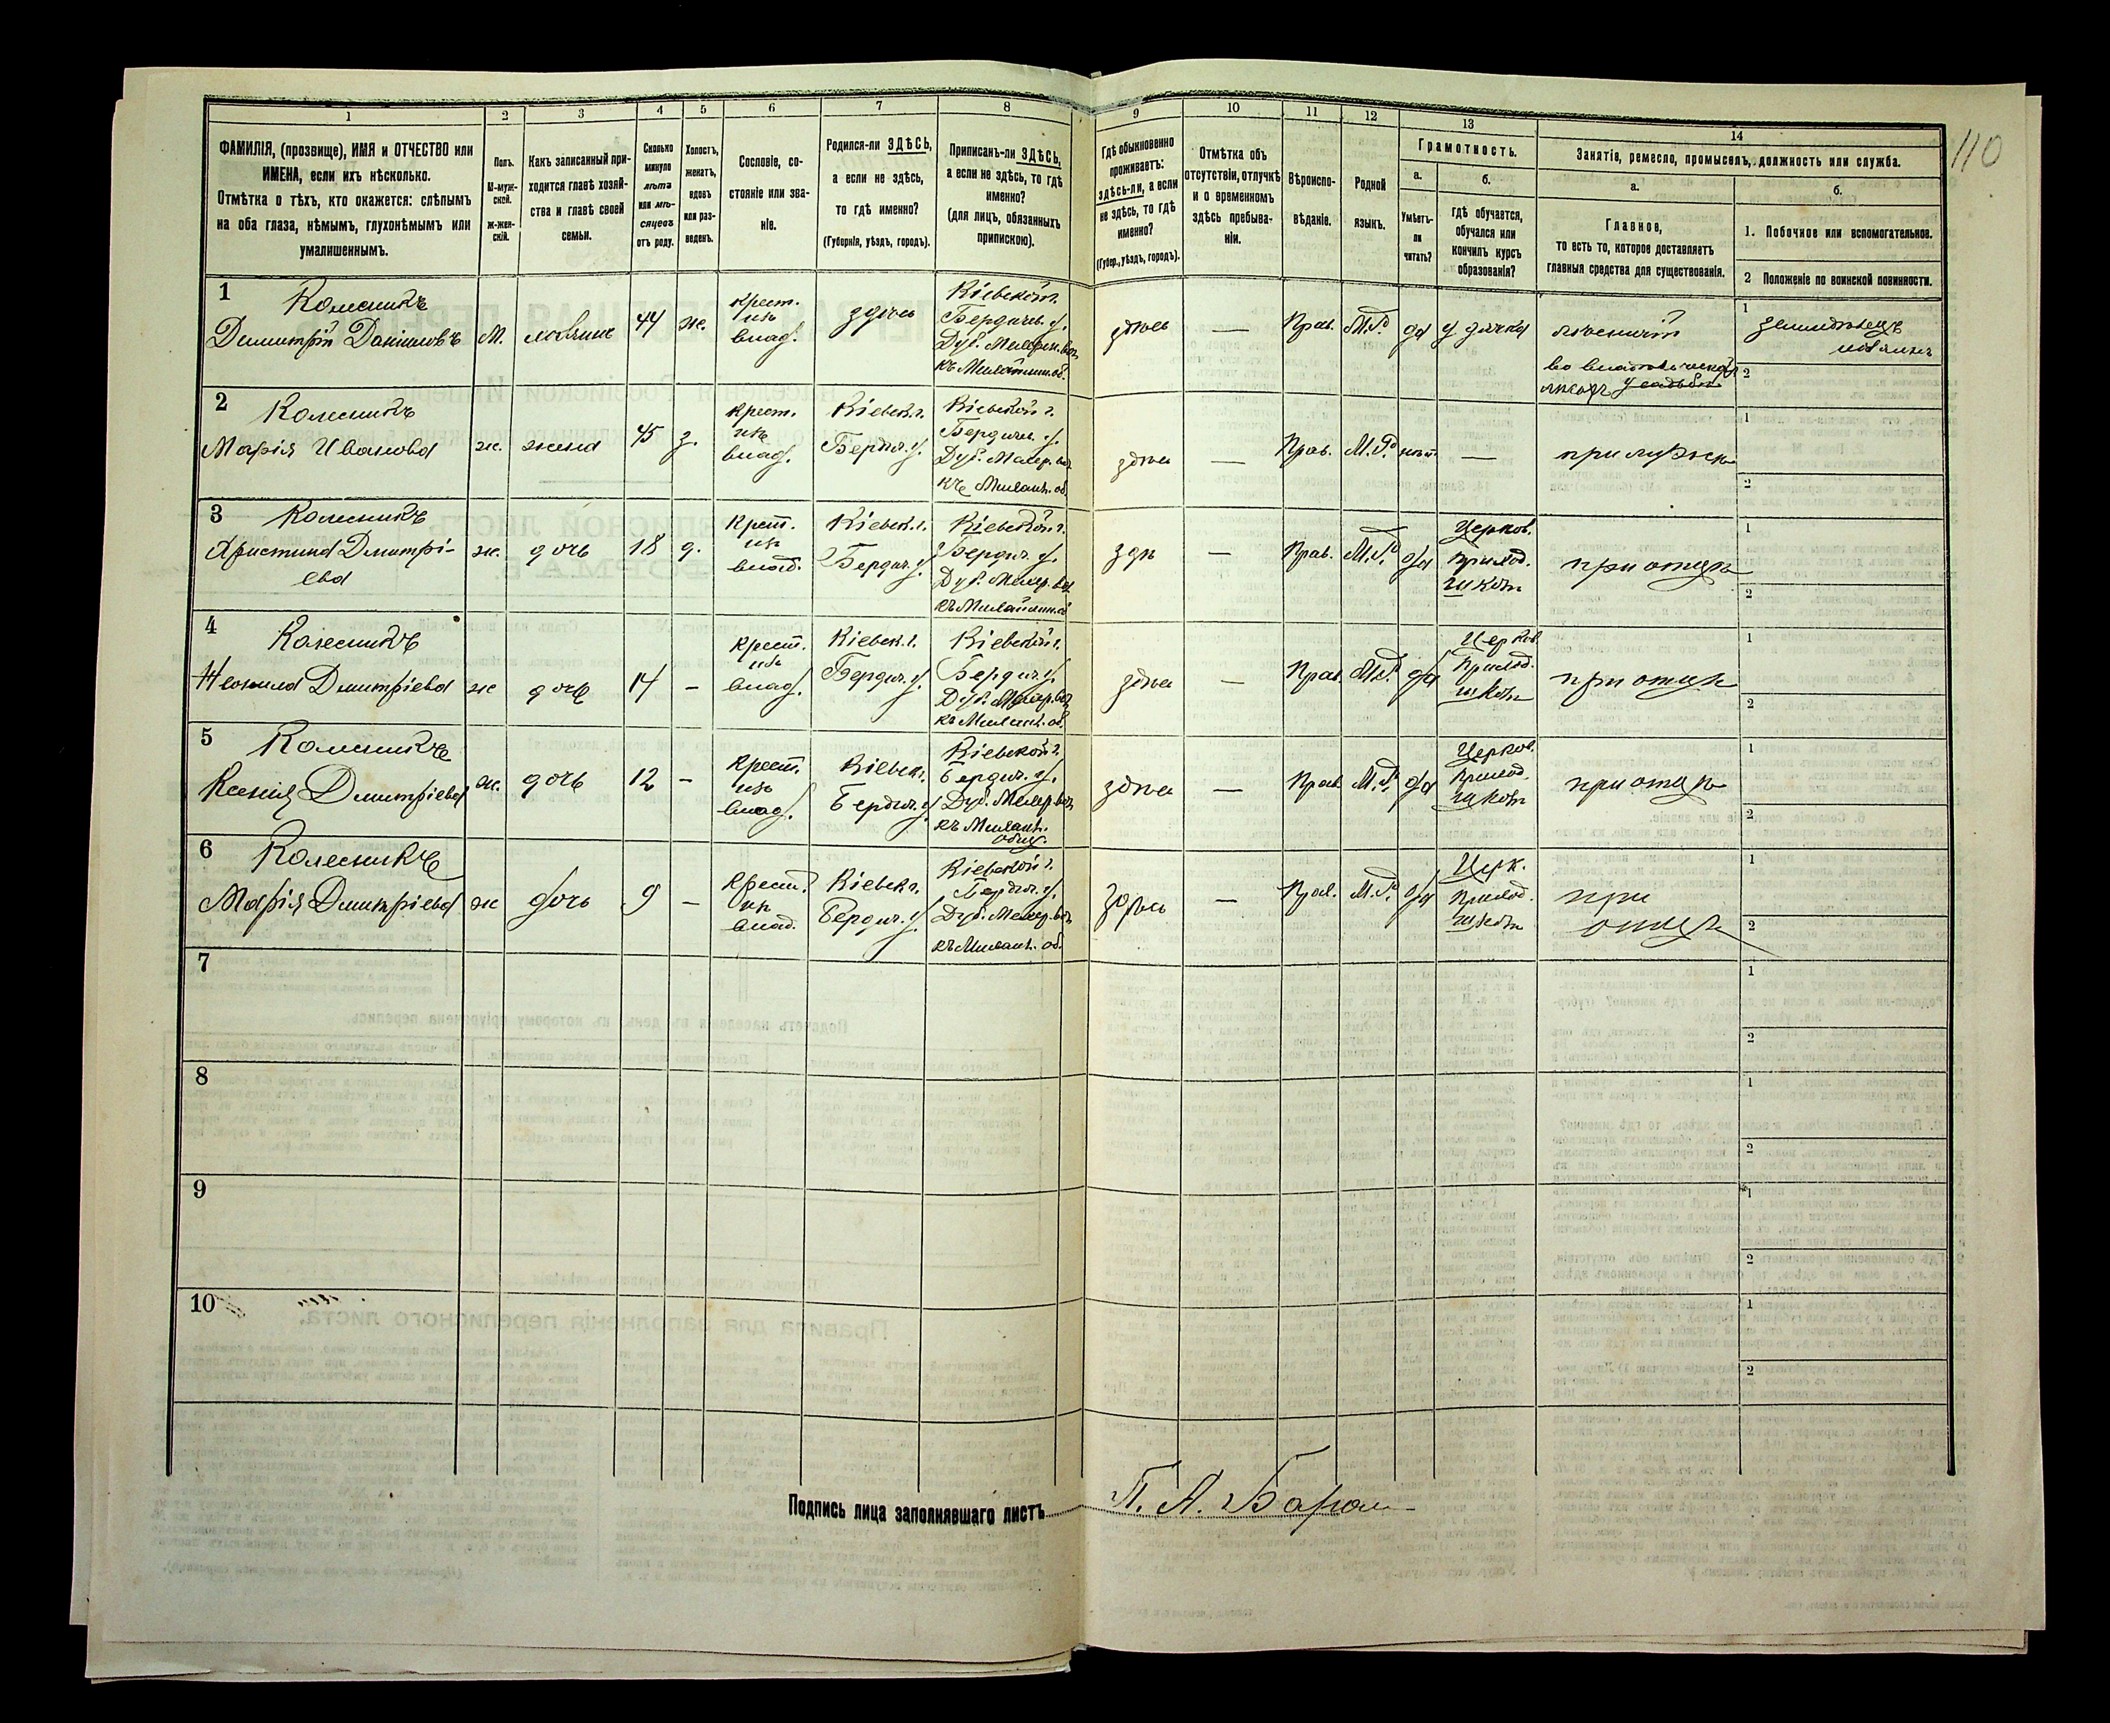 110
1
2
3
4
5
6
7
8
9
10
11
12
13
14
ФАМИЛІЯ, (прозвище), ИМЯ и ОТЧЕСТВО или
ИМЕНА, если ихъ нѣсколько.
Отмѣтка о тѣхъ, кто окажется: слѣпымъ
на оба глаза, нѣмымъ, глухонѣмымъ или
умалишеннымъ.
Полъ.
М-муж-
ской.
Ж-жен-
скій.
Какъ записанный при-
ходится главѣ хозяй-
ства и главѣ своей
семьи.
Сколько
минуло
лѣтъ
или мѣ-
сяцевъ
отъ роду.
Холостъ,
женатъ,
вдовъ
или раз-
веденъ.
Сословіе, со-
стояніе или зва-
ніе.
Родился-ли ЗДѢСЬ,
а если не здѣсь,
то гдѣ именно?
(Губернія, уѣздъ, городъ).
Приписанъ-ли ЗДѢСЬ,
а если не здѣсь, то гдѣ
именно?
(для лицъ, обязанныхъ
припискою).
Гдѣ обыкновенно
проживаетъ:
здѣсь-ли, а если
не здѣсь, то гдѣ
именно?
(Губер., уѣздъ, городъ).
Отмѣтка объ
отсутствіи, отлучкѣ
и о временномъ
здѣсь пребыва-
ніи.
Вѣроиспо-
вѣданіе.
Родной
языкъ.
Грамотность.
а.
Умѣетъ-
ли
читать?
б.
гдѣ обучается,
обучался или
кончилъ курсъ
образованія?
Занятіе, ремесло, промыселъ, должность или служба.
а.
Главное,
то есть то, которое доставляетъ
главныя средства для существованія.
б.
1. Побочное или вспомогательное.
2 Положеніе по воинской повинности.
1
Колесникъ
Димитрій Даніиловъ
М.
хозяинъ
44
ж.
крест.
изъ
влад.
здѣсь
Кіевской г.
Бердич. у.
здѣсь
—
Прав.
М.Р.
да
у дьячка
1
земледѣлецъ
хозяинъ
2
2
Колесникъ
Марія Иванова
ж.
жена
45
з.
крест.
изъ
влад.
Кіевск. г.
Бердич. у.
Кіевской г.
Бердич. у.
здѣсь
—
Прав.
М.Р.
нѣт
—
при мужѣ
1
2
3
Колесникъ
Христина Дмитрі-
ева
ж.
дочь
18
д.
крест.
изъ
влад.
Кіевск. г.
Бердич. у.
Кіевской г.
Бердич. у.
здѣ
—
Прав.
М.Р.
да
Церков.
Приход.
школѣ
при отцѣ
1
2
4
Колесникъ
Неонила Дмитріева
ж
дочь
14
—
крест.
изъ
влад.
Кіевск. г.
Бердич. у.
Кіевской г.
Бердич. у.
здѣсь
—
Прав.
М.Р.
да
Церков.
Приход.
школѣ
при отцѣ
1
2
5
Колесникъ
Ксенія Дмитріева
ж.
дочь
12
—
крест.
изъ
влад.
Кіевск.
Бердич. у.
Кіевской г.
Бердич. у.
здѣсь
—
Прав.
М.Р.
да
Церков.
Приход.
школѣ
при отцѣ
1
2
6
Колесникъ
Марія Дмитріева
ж
дочь
9
—
крест.
из
влад.
Кіевск г.
Бердич. у.
Кіевской г.
Бердич. у.
здѣсь
—
Прав.
М.Р.
да
Церк.
Приход.
школѣ
при
отцѣ
1
2
7
1
2
8
1
2
9
1
2
10
1
2
Подпись лица заполнявшаго листъ
П. А. Баран